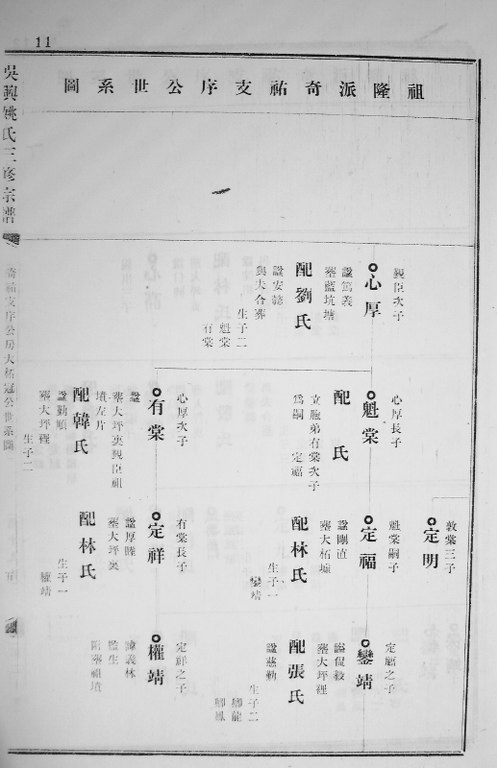 11
祖隆派奇祐支序公世系圖
吳興姚氏三修宗譜
親臣次子
心厚
諡篤義
塟藍坑塘
配劉氏
諡安懿
與夫合葬
生子二
魁棠
有棠
心厚長子
魁棠
配 氏
立胞弟有棠次子
定福
為嗣
心厚次子
有棠
諡
塟大坪裏親臣祖
墳左片
配韓氏
諡勤順
塟大坪裡
生子二
敦棠三子
定明
魁棠嗣子
定福
諡剛直
塟大柘塘
配林氏
生子一
鑾靖
有棠長子
定祥
諡厚睦
塟大坪裏
配林氏
生子一
權靖
定福之子
鑾靖
諡侃毅
塟大坪裡
配張氏
諡慈勤
生子二
卿龍
卿鳳
定祥之子
權靖
諱義林
監生
附塟祖墳